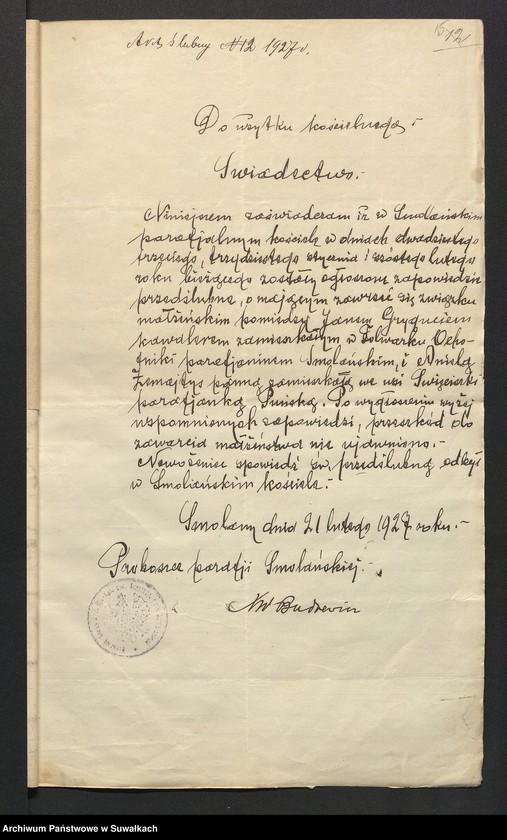 Akt ślubny №12 1927 r.
12
Do użytku kościelnego.-
Swiadectwo.-
Niniejszem zaświadczam iż w Smolańskim
parafjalnym kościele w dniach dwudziestego
trzeciego, trzydziestego stycznia i szóstego lutego
roku bieżącego zostały ogłoszone zapowiedzie
przedślubne, o mającym zawrzeć się związku
małżeńskim pomiędzy Janem Gryguciem
kawalerem zamieszkałym w Folwarku Ocho-
tniki parafjaninem Smolańskim, i Anielą
Żemajtys panną zamieszkałą we wsi
parafjanką Puńską. Po wygłoszeniu wyżej
wspomnionych zapowiedzi, przeszkód do
zawarcia małżeństwa nie ujawniono.-
Nowożeniec spowiedź św. przedślubną odbył
w Smolańskim kościele.-
Smolany dnia 21 lutego 1927 roku.-
Proboszcz parafji Smolańskiej.-
Budzewin
Archiwum Państwowe w Suwałkach